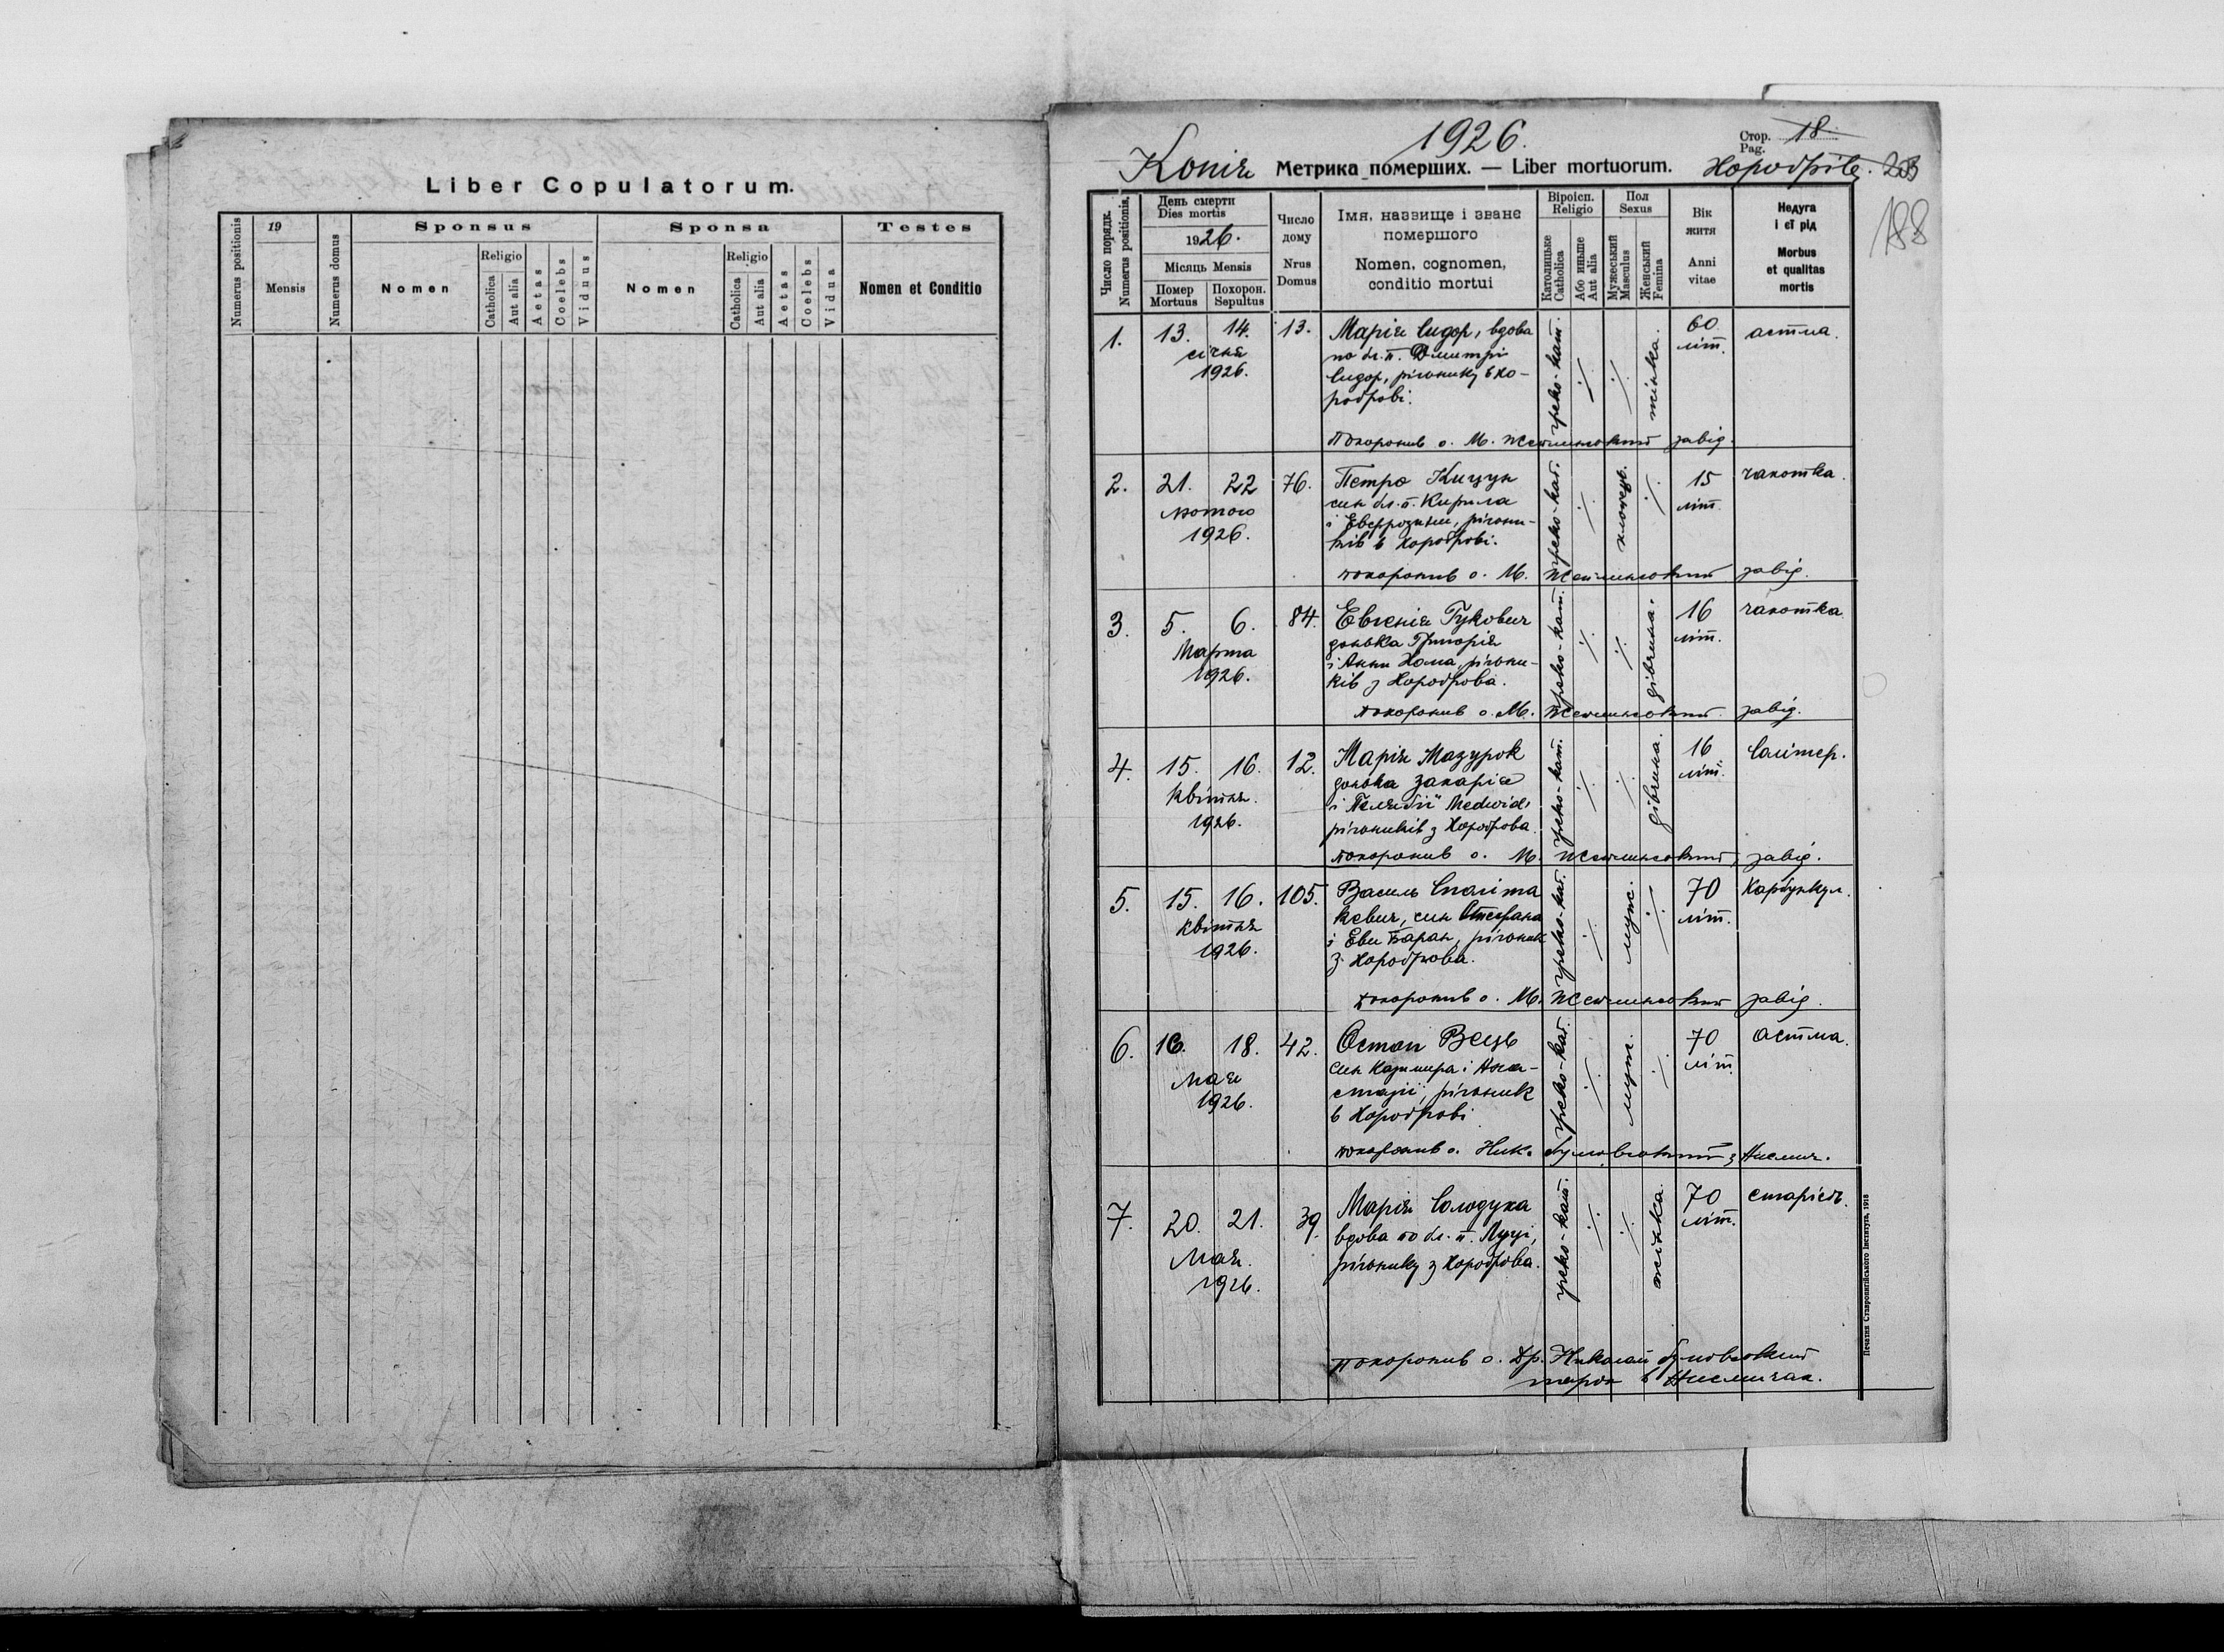 Liber Copulatorum.
Numerus positionis
19
Mensis
Numerus domus
Sponsus
Sponsa
Testes
Nomen
Religio
Catholica
Aut alia
Aetas
Coelebs
Viduus
Nomen
Religio
Catholica
Aut alia
Aetas
Coelebs
Vidua
Nomen et Conditio
1926.
Стор.
Pag.
18.
Копія Метрика померших. — Liber mortuorum. Хоробрів. 203
188
Число порядк.
Numerus positionis.
День смерти
Dies mortis
1926.
Місяць Mensis
Помер
Mortuus
Похорон.
Sepultus
Число
дому
Nrus
Domus
Імя, назвище і званє
помершого
Nomen, cognomen,
conditio mortui
Віроісп.
Religio
Католицьке
Catholica
Або иньше
Aut alia
Пол
Sexus
Мужеський
Masculus
Женський
Femina
Вік
житя
Anni
vitae
Недуга
і єї рід
Morbus
et qualitas
mortis
1. 13. 14. 13. Марія Сидор, вдова
по бл. п. Дмитрі
Сидор, рільнику в Хо-
роброві.
січня
1926.
греко-кат. ·/· ·/· жінка.
60
літ.
астма.
Похоронив о. М. завід.
2. 21. 22 76. Петро Кицун
син бл. п. Кирила
і Евфрозини, рільни-
ків в Хороброві.
лютого
1926.
греко-кат. ·/· хлопець. ·/·
15
літ.
чахотка.
похоронив о. М. завід.
3. 5. 6. 84. Евгенія Гукович
донька Григорія
і Анни Хома, рільни-
ків з Хороброва.
Марта
1926.
греко-кат. ·/· ·/· дівчина.
16
літ.
чахотка.
похоронив о. М. завід.
4. 15. 16. 12. Марія Мазурок
донька Захарія
і Пелягії Medwid,
рільників з Хороброва.
квітня.
1926.
греко-кат. ·/· ·/· дівчина.
16
літ.
Солітер.
похоронив о. М. завід.
5. 15. 16. 105. Василь
кевич, син Стефана
і Еви Баран, рільник
з Хороброва.
квітня
1926.
греко-кат. ·/· муж. ·/·
70
літ.
Карбункул.
похоронив о. М. завід.
6. 16. 18. 42. Остап Вець
син Казимира і Ана-
стазії, рільник
в Хороброві
мая
1926.
греко-кат. ·/· муж. ·/·
70
літ.
астма.
похоронив о. Ник. з
7. 20. 21. 39. Марія Солодуха
вдова по бл. п. Луці,
рільнику з Хороброва.
Мая.
1926.
греко-кат. ·/· ·/· жінка.
70
літ.
старість.
Похоронив о. Др. Николай
парох в
Печатня Ставропигійського Інститута, 1918